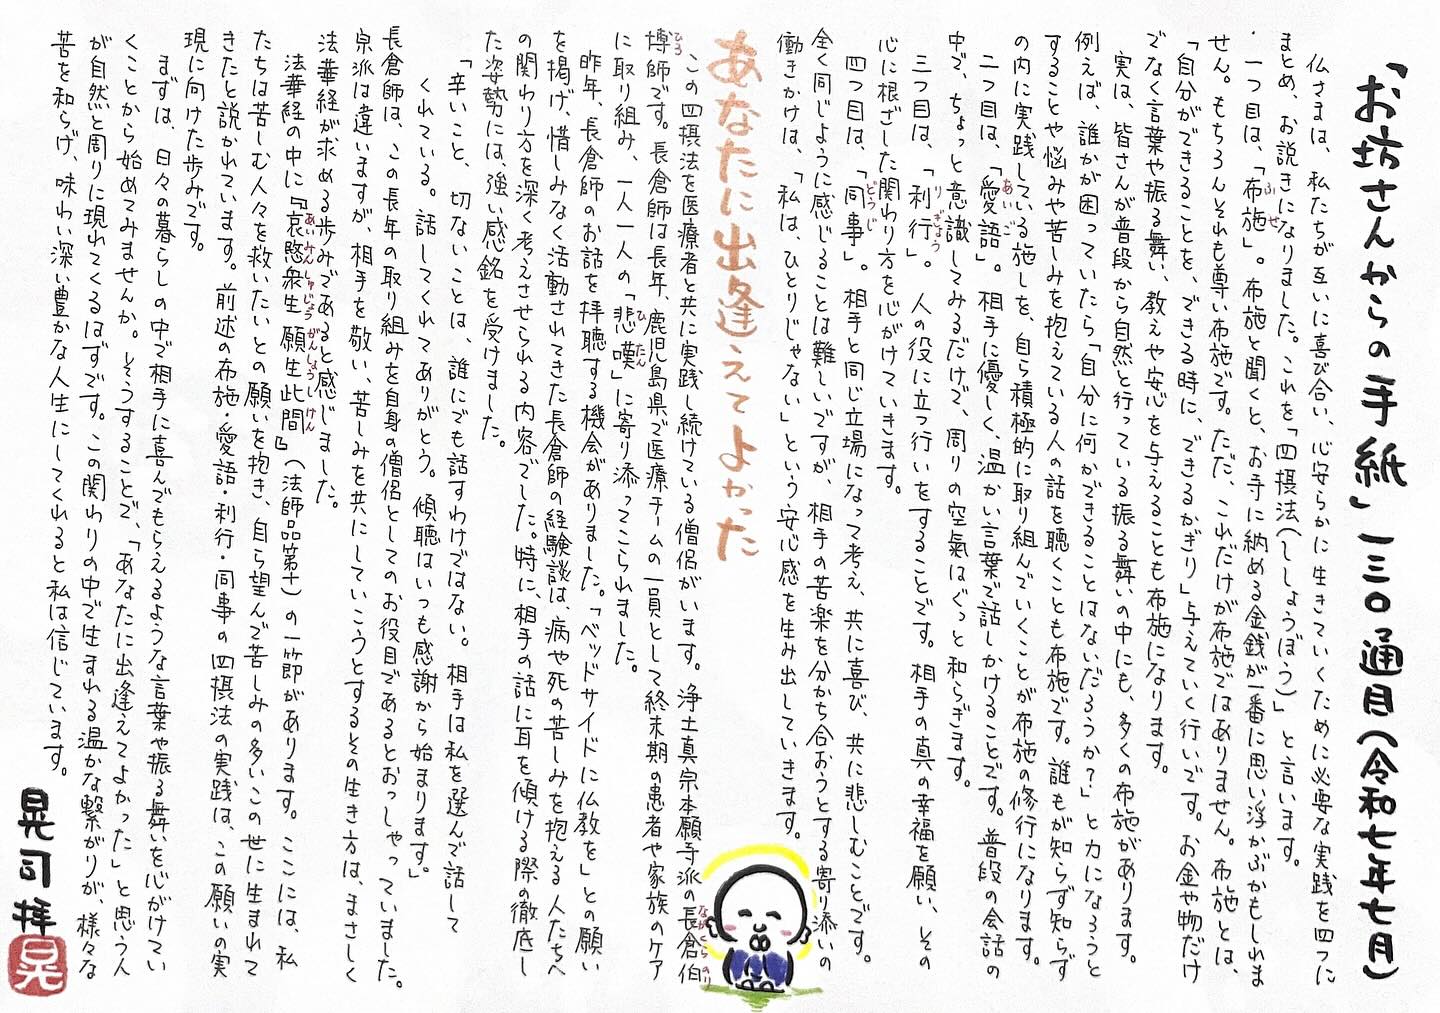 「お坊さんからの手紙」一三〇通目(令和七年七月)
仏さまは、私たちが互いに喜び合い、心安らかに生きていくために必要な実践を四つに
まとめ、お説きになりました。これを「四摂法(ししょうぼう)」と言います。
一つ目は、「布施」。布施と聞くと、お手に納める金銭が一番に思い浮かぶかもしれま
せん。もちろんそれも尊い布施です。ただ、これだけが布施ではありません。布施とは、
「自分ができることを、できる時に、できるかぎり」与えていく行いです。お金や物だけ
でなく言葉や振る舞い、教えや安心を与えることも布施になります。
実は、皆さんが普段から自然と行っている振る舞いの中にも、多くの布施があります。
例えば、誰かが困っていたら「自分に何かできることはないだろうか?」と力になろうと
することや悩みや苦しみを抱えている人の話を聴くことも布施です。誰もが知らず知らず
の内に実践している施しを、自ら積極的に取り組んでいくことが布施の修行になります。
二つ目は、「愛語」。相手に優しく、温かい言葉で話しかけることです。普段の会話の
中で、ちょっと意識してみるだけで、周りの空氣はぐっと和らぎます。
三つ目は、「利行」。人の役に立つ行いをすることです。相手の真の幸福を願い、その
心に根ざした関わり方を心がけていきます。
四つ目は、「同事」。相手と同じ立場になって考え、共に喜び、共に悲しむことです。
全く同じように感じることは難しいですが、相手の苦楽を分かち合おうとする寄り添いの
働きかけは、「私は、ひとりじゃない」という安心感を生み出していきます。
あなたに出逢えてよかった
この四摂法を医療者と共に実践し続けている僧侶がいます。浄土真宗本願寺派の長倉伯
博師です。長倉師は長年、鹿児島県で医療チームの一員として終末期の患者や家族のケア
に取り組み、一人一人の「悲嘆」に寄り添ってこられました。
昨年、長倉師のお話を拝聴する機会がありました。「ベッドサイドに仏教を」との願い
を掲げ、惜しみなく活動されてきた長倉師の経験談は、病や死の苦しみを抱える人たちへ
の関わり方を深く考えさせられる内容でした。特に、相手の話に耳を傾ける際の徹底し
た姿勢には、強い感銘を受けました。
「辛いこと、切ないことは、誰にでも話すわけではない。相手は私を選んで話して
くれている。話してくれてありがとう。傾聴はいつも感謝から始まります。」
長倉師は、この長年の取り組みを自身の僧侶としてのお役目であるとおっしゃっていました。
宗派は違いますが、相手を敬い、苦しみを共にしていこうとするその生き方は、まさしく
法華経が求める歩みであると感じました。
法華経の中に『哀愍衆生 願生此間』(法師品第十)の一節があります。ここには、私
たちは苦しむ人々を救いたいとの願いを抱き、自ら望んで苦しみの多いこの世に生まれて
きたと説かれています。前述の布施・愛語・利行・同事の四摂法の実践は、この願いの実
現に向けた歩みです。
まずは、日々の暮らしの中で相手に喜んでもらえるような言葉や振る舞いを心がけてい
くことから始めてみませんか。そうすることで、「あなたに出逢えてよかった」と思う人
が自然と周りに現れてくるはずです。この関わりの中で生まれる温かな繋がりが、様々な
苦を和らげ、味わい深い豊かな人生にしてくれると私は信じています。
晃司 拝
晃